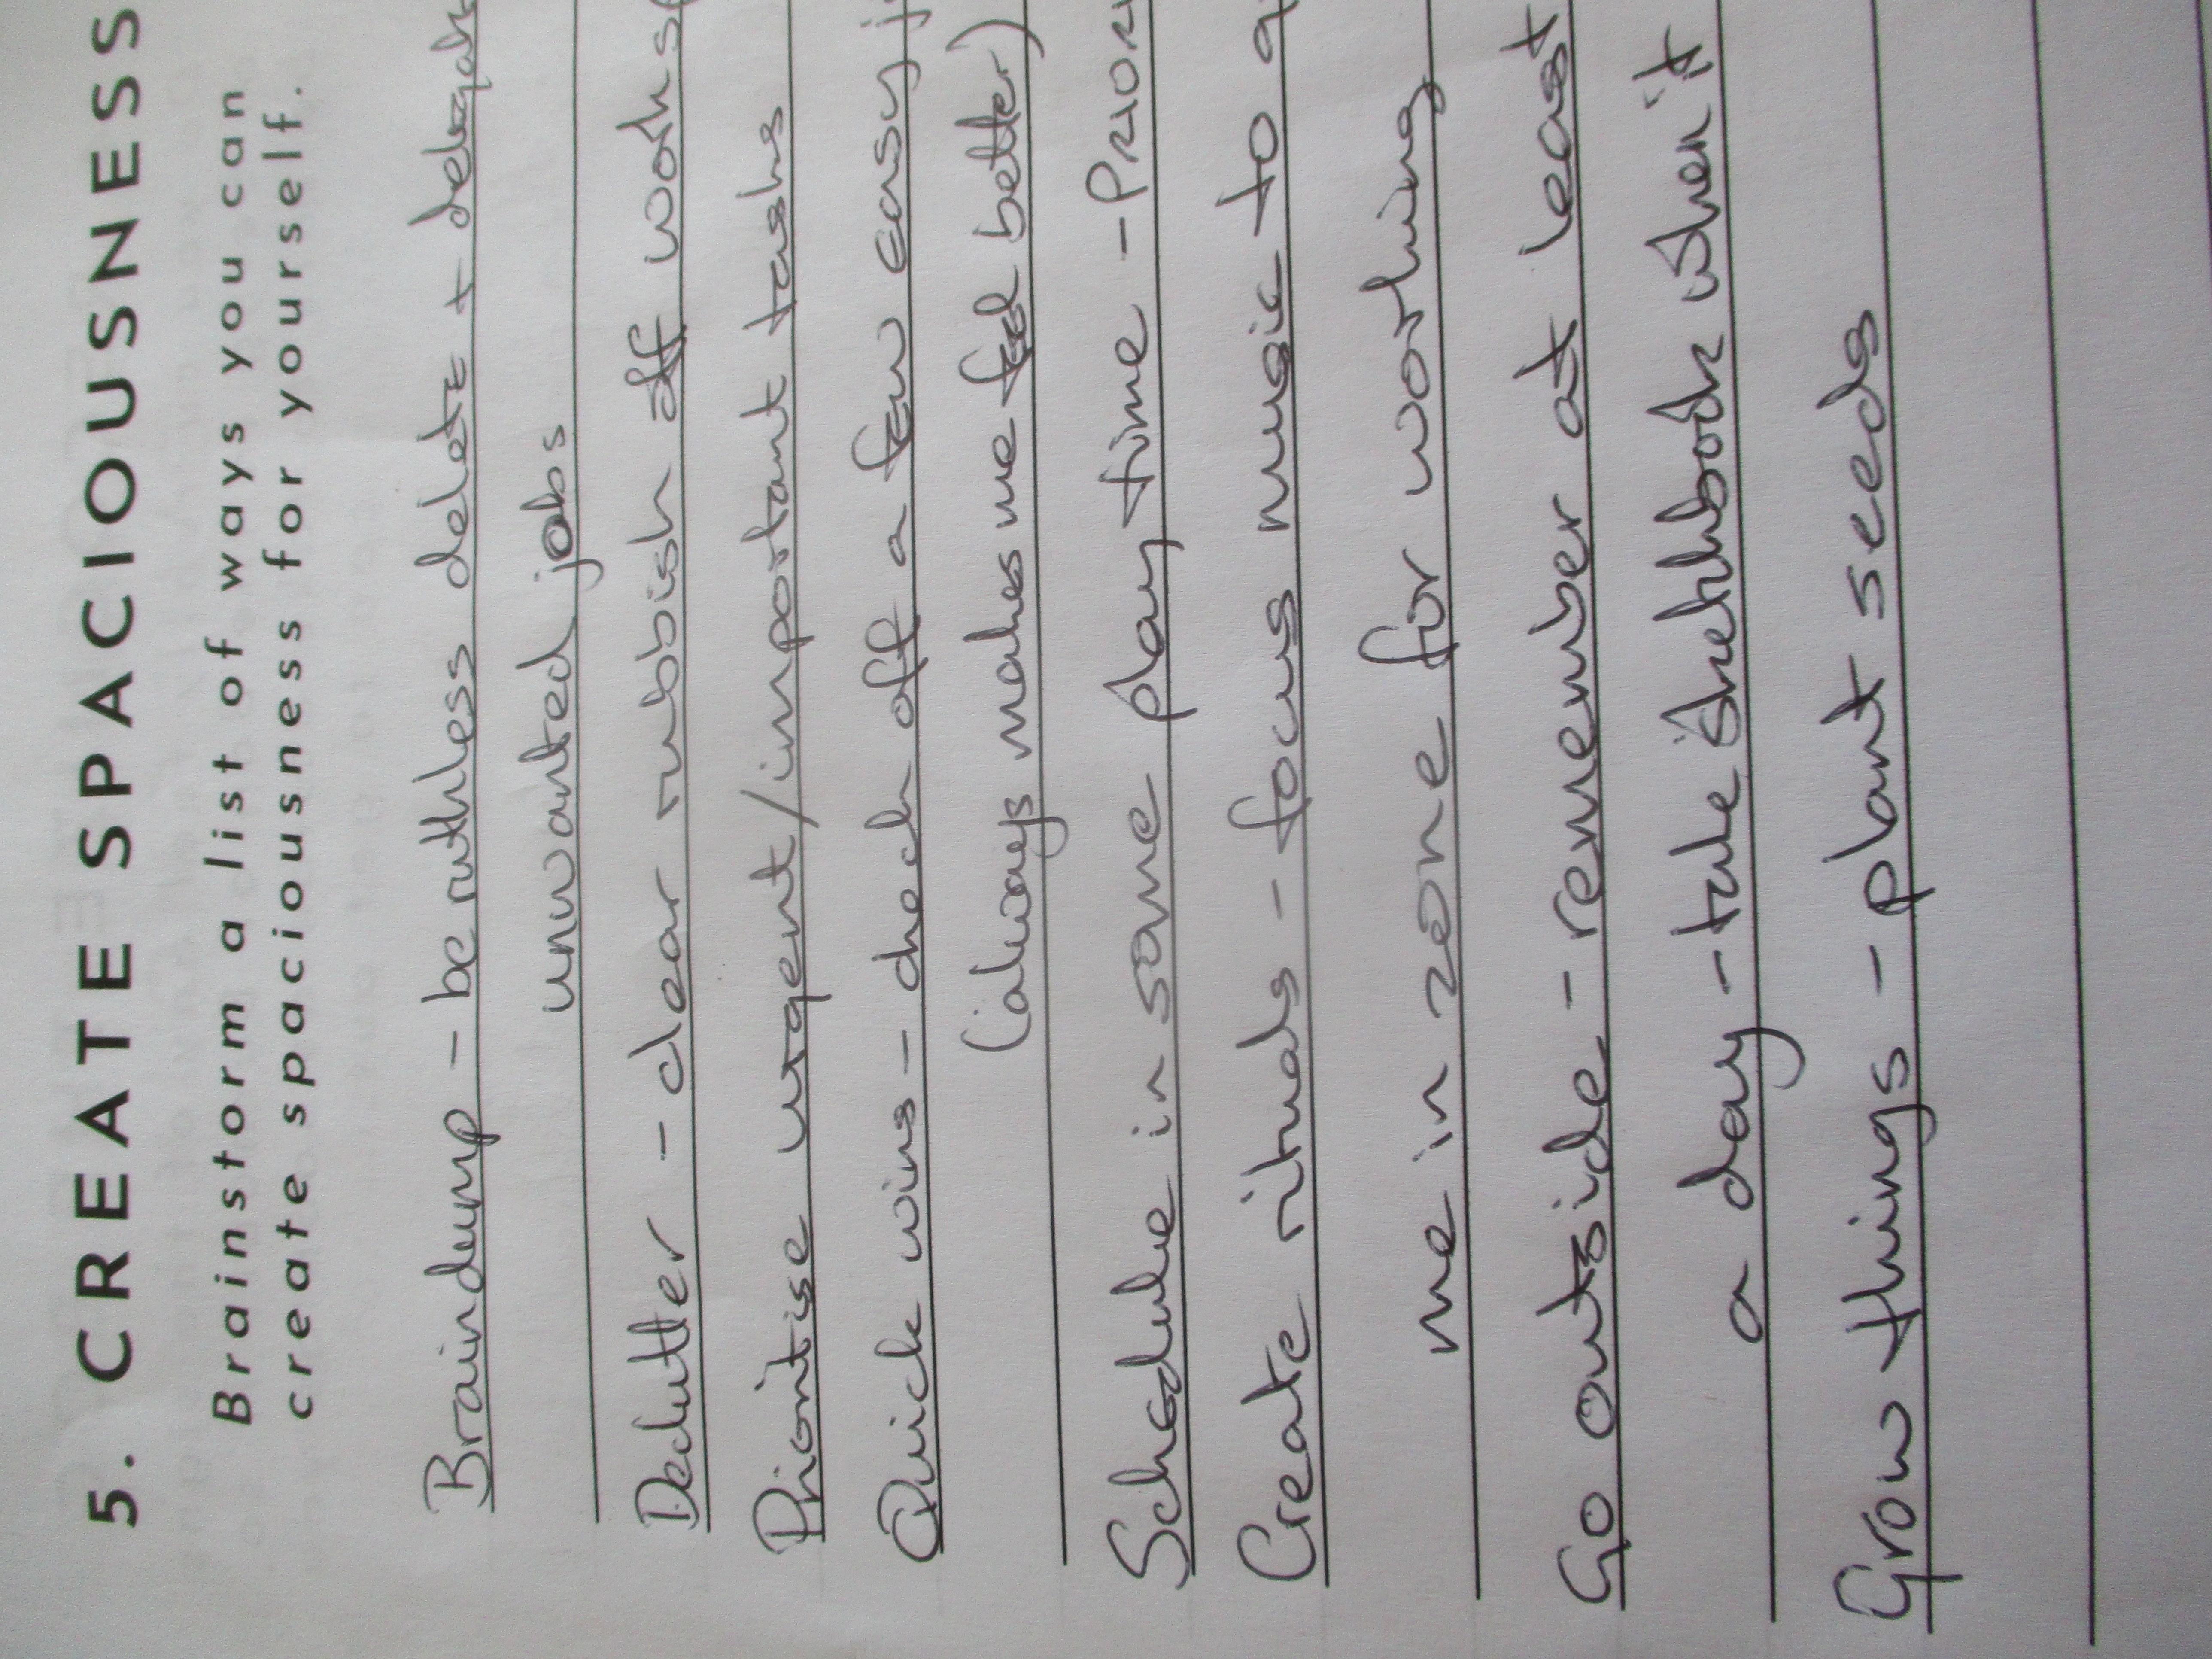 5. CREATE SPACIOUSNESS
Brainstorm a list of ways you can
create spaciousness for yourself.
Braindump - be ruthless delete + delegat
unwanted jobs
Declutter - clear rubbish off work s
Prioritise urgent/important tasks
Quick wins - check off a few easy j
(always makes me feel better)
Schedule in some play time - PRIOR
Create rituals - focus music to g
me in zone for working
Go outside - remember at least
a day - take sketchbook when it
Grow things - plant seeds